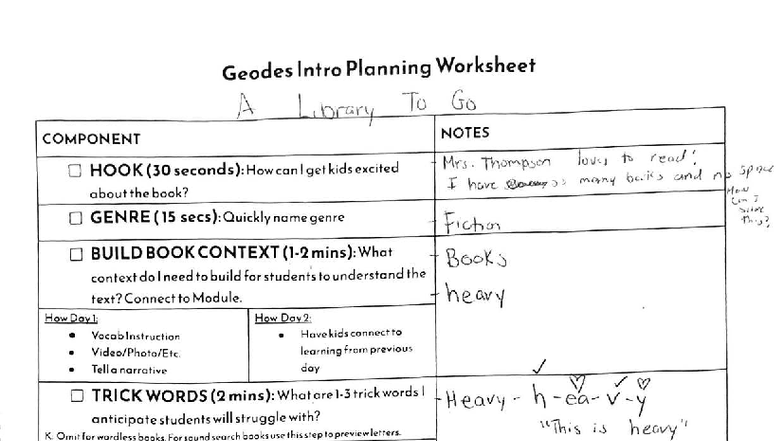 Geodes Intro Planning Worksheet
A Library To Go
COMPONENT
NOTES
HOOK (30 seconds): How can I get kids excited
about the book?
- Mrs. Thompson loves to read!
I have so many books and no space
How
can I
solve
this?
GENRE (15 secs): Quickly name genre
- Fiction
BUILD BOOK CONTEXT (1-2 mins): What
context do I need to build for students to understand the
text? Connect to Module.
- Books
- heavy
How Day 1:
• Vocab Instruction
• Video/Photo/Etc.
• Tell a narrative
How Day 2:
• Have kids connect to
learning from previous
day
TRICK WORDS (2 mins): What are 1-3 trick words I
anticipate students will struggle with?
K: Omit for wordless books. For sound search books use this step to preview letters.
- Heavy - h-ea-v-y
"This is heavy"